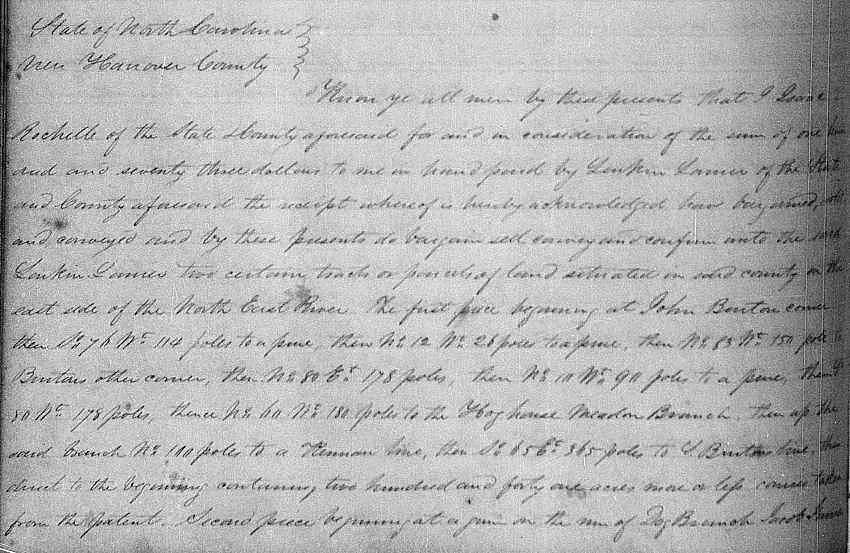 State of North Carolina
New Hanover County
Know ye all men by these presents that I Isaac
Rochelle of the State & County aforesaid for and in consideration of the sum of one
and and seventy three dollars to me in hand paid by Lenkin Lanier of the State
and County aforesaid the receipt whereof is hereby acknowledged have bargained, sold
and conveyed and by these presents do bargain sell convey and confirm unto the said
Lenkin Lanier two certain tracts or parcels of land situated in said county on the
east side of the North East River The first piece beginning at John Bunton corner
then So 76 Wt 114 poles to a pine, then No 12 Wt 26 poles to a pine, then No 83 Wt 150 pole to
Buntons other corner, then No 80 Et 178 poles, then No 10 Wt 90 poles to a pine, then So
80 Wt 178 poles, thence No 60 180 poles to the Hog house Meadow Branch. then up the
said branch No 100 poles to a Kennan line, then So 65 Et 365 poles to Buntons line,
direct to the beginning containing two hundred and forty one acres more or less courses taken
from the patent. Second piece beginning at a pine on the run of Dog Branch Jacob